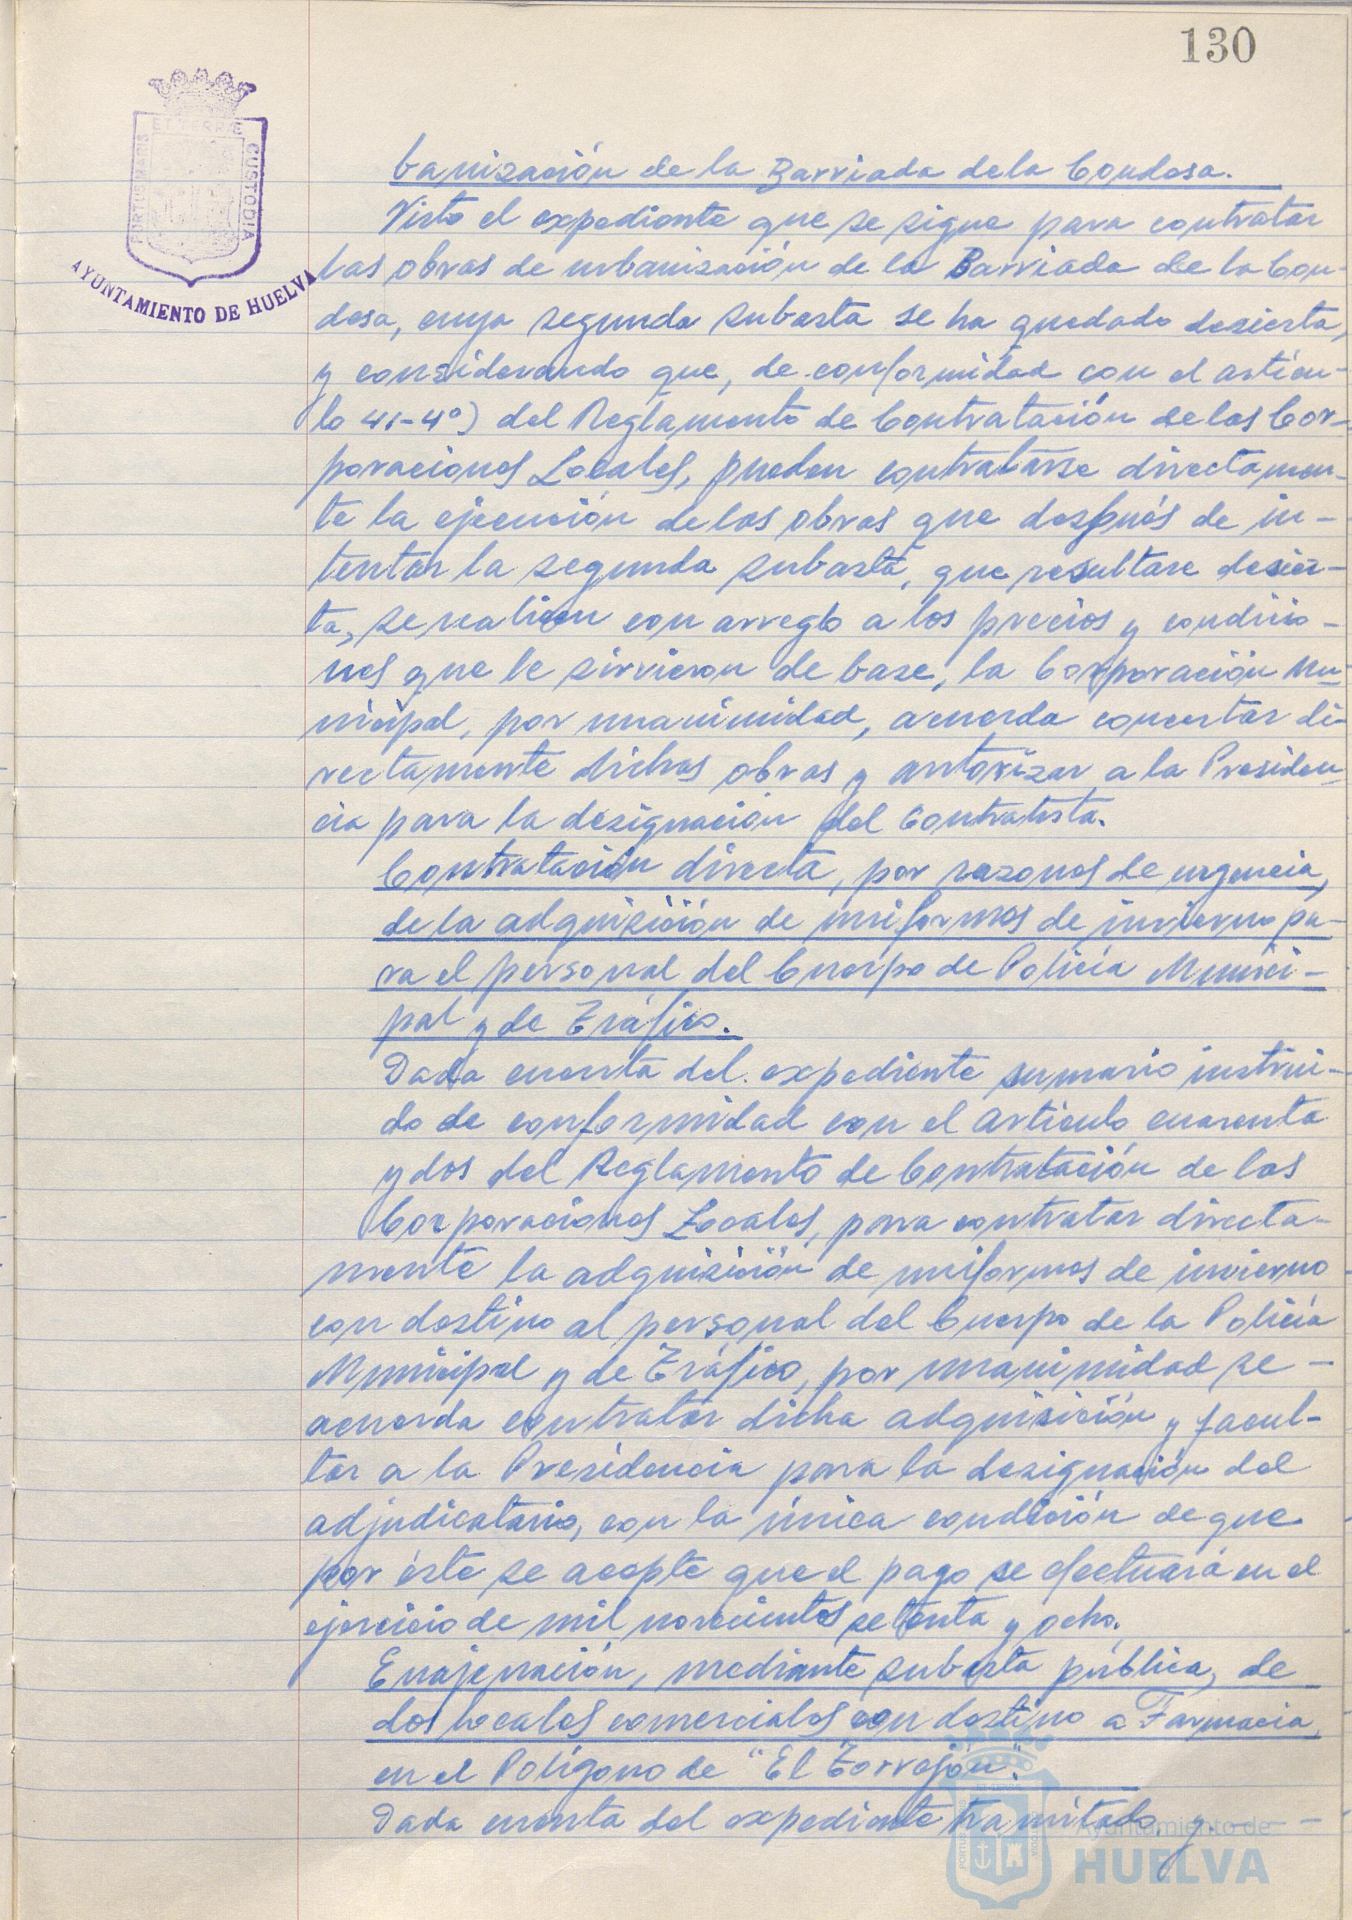 130
ET TERRÆ
PORTUS MARIS
CUSTODIA
AYUNTAMIENTO DE HUELVA
banización de la Barriada dela Condesa.
Visto el expediente que se sigue para contratar
las obras de urbanización de la Barriada de la Con-
desa, cuya segunda subasta se ha quedado desierta,
y considerando que, de conformidad con el artícu-
lo 41-4º) del Reglamento de Contratación de las Cor-
poraciones Locales, pueden contratarse directamen-
te la ejecución de las obras que después de in-
tentar la segunda subasta, que resultare desier-
ta, se realicen con arreglo a los precios y condicio-
nes que le sirvieron de base, la Corporación Mu-
nicipal, por unanimidad, acuerda concertar di-
rectamente dichas obras y autorizar a la Presiden-
cia para la designación del Contratista.
Contratación directa, por razones de urgencia,
de la adquisición de uniformes de invierno pa-
ra el personal del Cuerpo de Policía Munici-
pal y de Tráfico.
Dada cuenta del expediente sumario instrui-
do de conformidad con el artículo cuarenta
y dos del Reglamento de Contratación de las
Corporaciones Locales, para contratar directa-
mente la adquisición de uniformes de invierno
con destino al personal del Cuerpo de la Policía
Municipal y de Tráfico, por unanimidad se -
acuerda contratar dicha adquisición y facul-
tar a la Presidencia para la designación del
adjudicatario, con la única condición de que
por éste se acepte que el pago se efectuará en el
ejercicio de mil novecientos setenta y ocho.
Enajenación, mediante subasta pública, de
dos locales comerciales con destino a Farmacia,
en el Polígono de "El Torrejón".
Dada cuenta del expediente tramitado, y - -
Ayuntamiento de
HUELVA